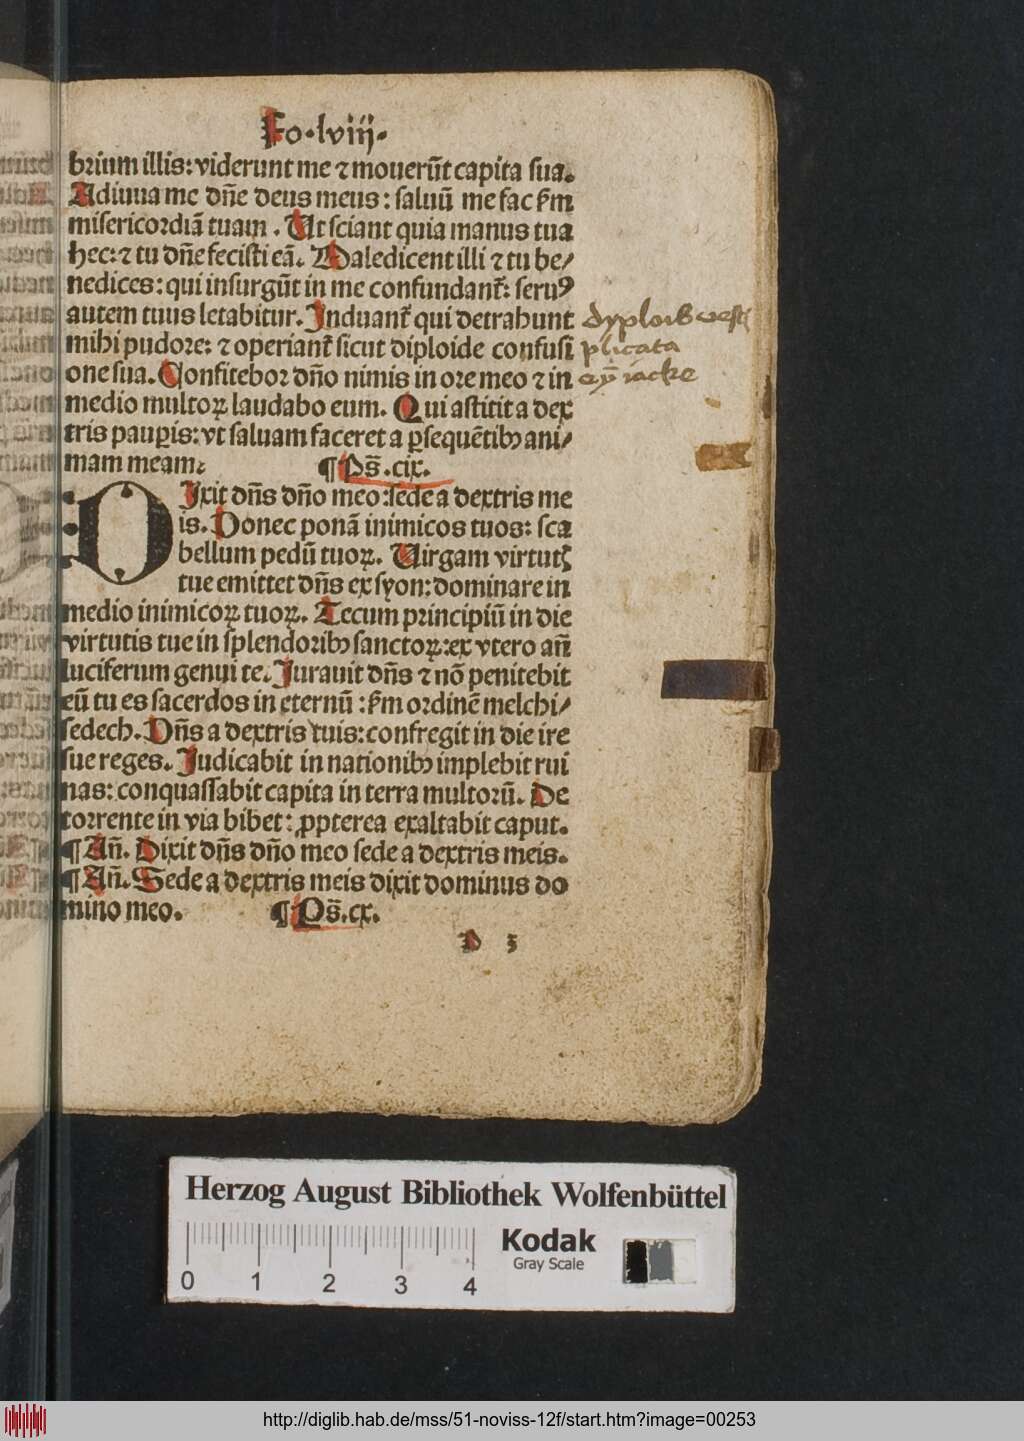 Fo·lviij·
brium illis: viderunt me ⁊ mouerūt capita sua.
Adiuua me dn̄e deus meus: saluū me fac ẜm
misericordiā tuam. Ut sciant quia manus tua
hec: ⁊ tu dn̄e fecisti eā. Maledicent illi ⁊ tu be⸗
nedices: qui insurgūt in me confundant᷑: seruꝰ
autem tuus letabitur. Induant᷑ qui detrahunt
mihi pudore: ⁊ operiant᷑ sicut diploide confusi
one sua. Confitebor dn̄o nimis in ore meo ⁊ in
medio multoꝝ laudabo eum. Qui astitit a dex
tris paup̱is: vt saluam faceret a ꝑsequētibꝫ ani⸗
mam meam.
¶ Ps̄.cix.
DIxit dn̄s dn̄o meo: sede a dextris me
is. Donec ponā inimicos tuos: sca
bellum pedū tuoꝝ. Uirgam virtutꝭ
tue emittet dn̄s ex syon: dominare in
medio inimicoꝝ tuoꝝ. Tecum principiū in die
virtutis tue in splendoribꝫ sanctoꝝ: ex vtero an̄
luciferum genui te. Jurauit dn̄s ⁊ nō penitebit
eū tu es sacerdos in eternū: ẜm ordinē melchi⸗
sedech. Dn̄s a dextris tuis: confregit in die ire
sue reges. Judicabit in nationibꝫ implebit rui
nas: conquassabit capita in terra multorū. De
torrente in via bibet: ꝓpterea exaltabit caput.
¶ An̄. Dixit dn̄s dn̄o meo sede a dextris meis.
¶ An̄. Sede a dextris meis dixit dominus do
mino meo.
¶ Ps̄.cx.
D 3
dyplois vesti
plicata
eyn iacke
Herzog August Bibliothek Wolfenbüttel
Kodak
Gray Scale
0 1 2 3 4
http://diglib.hab.de/mss/51-noviss-12f/start.htm?image=00253